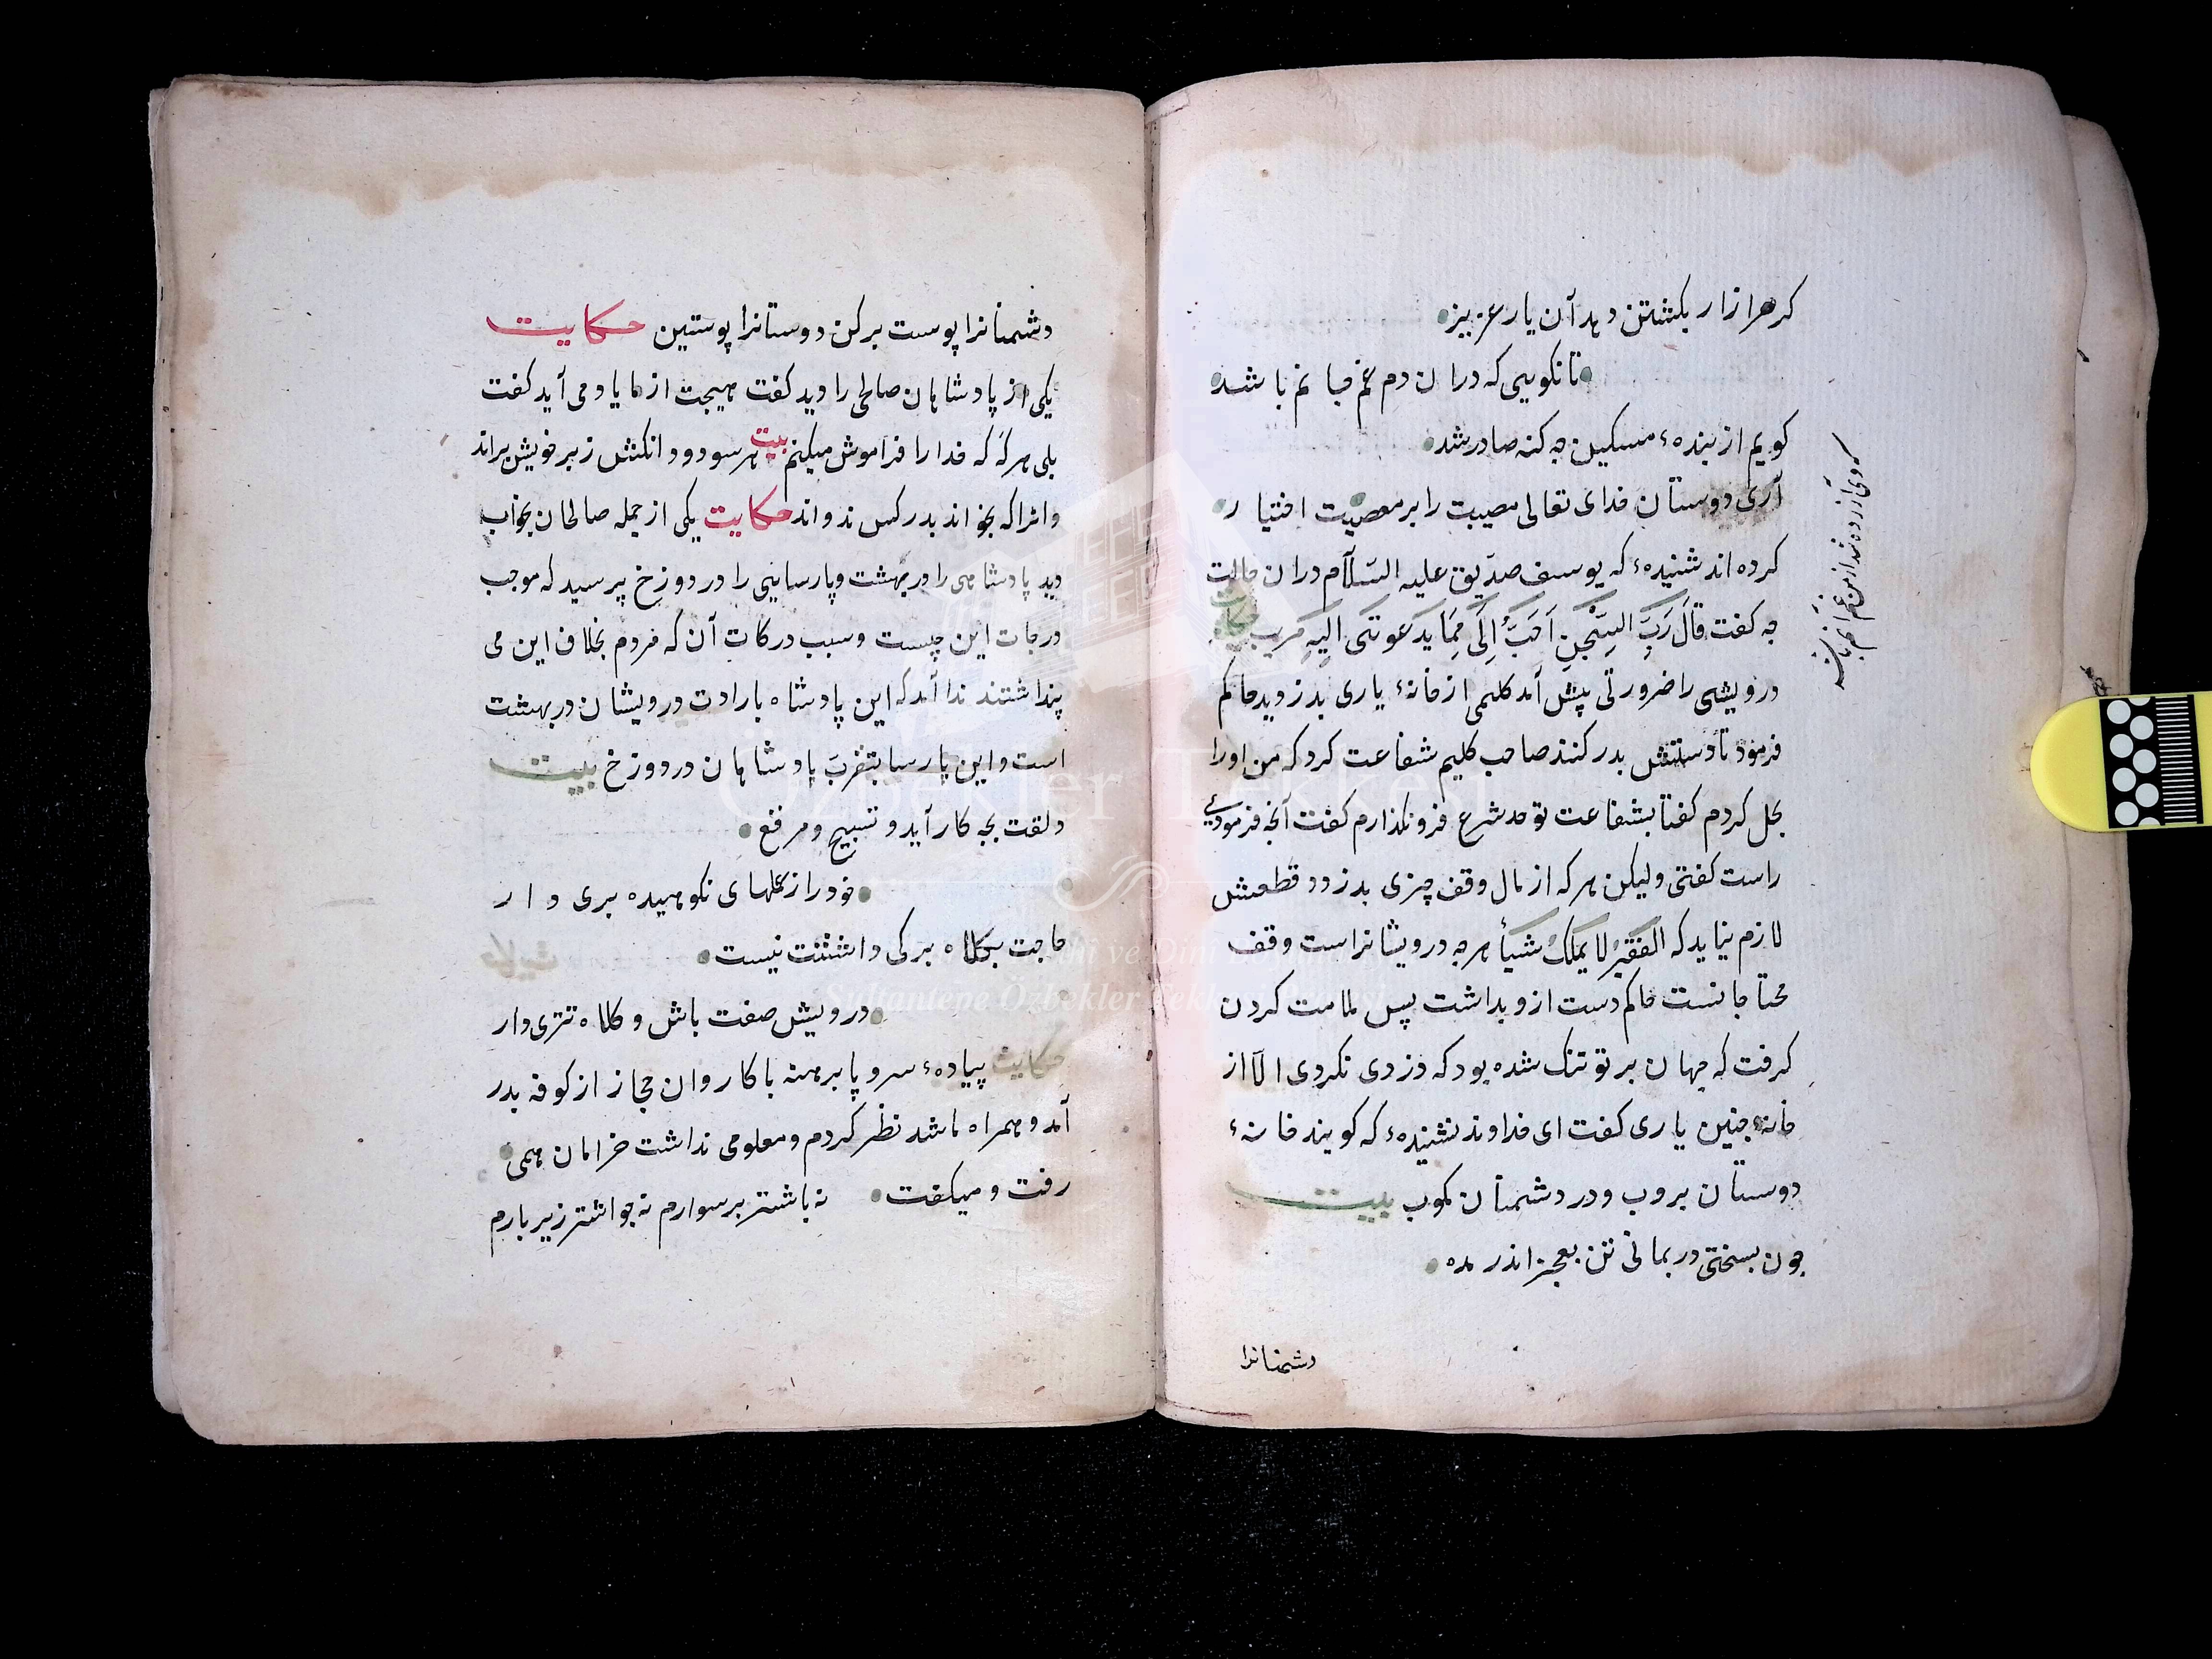 کرهرا زار بکشتن دهد آن یار عزیزه
تا نکویی که دران دم غم جانم باشد
کویم از بندهٔ مسکین چه کنه صادر شد
که وی آزرده شد از من غم آنم باشد
آری دوستان خدای تعالی مصیبت را بر معصیت اختیار
کرده اند شنیدهٔ که یوسف صدیق علیه السّلآم دران حالت
چه کفت قَالَ رَبِّ السِّجْنُ اَحَبُّ اِلَیَّ مِمَّا یَدْعُونَنی اِلَیْهِ حکایت
درویشی را ضرورتی پیش آمد کلیمی از خانهٔ یاری بدزدید حاکم
فرمود تا دستش بدر کنند صاحب کلیم شفاعت کرد که من اورا
بحل کردم کفتا بشفاعت تو حد شرع فرو نکذارم کفت آنچه فرمودی
راست کفتی ولیکن هر که از مال وقف چیزی بدزدد قطعش
لازم نیاید که الفَقیرُ لا یَملکُ شَیأً هر چه درویشانراست وقف
محتاجانست حاکم دست ازو بداشت پس ملامت کردن
کرفت که جهان بر تو تنک شده بود که دزدی نکردی الآ از
خانهٔ چنین یاری کفت ای خداوند نشنیدهٔ که کویند خانهٔ
دوستان بروب و در دشمنان مکوب بیت
چون بسختی در بمانی تن بعجز اندر مده
دشمنانرا
دشمنانرا پوست برکن دوستانرا پوستین حکایت
یکی از پادشاهان صالحی را دید کفت هیچت از ما یاد می آید کفت
بلی هر که که خدا را فراموش میکنم بیت هر سو دود انکش ز بر خویش براند
وانرا که بخواند بدر کس ندواند حکایت یکی از جمله صالحان بخواب
دید پادشاهی را در بهشت و پارسایی را در دوزخ پرسید که موجب
درجات این چیست و سبب درکات آن که مردم بخلاف این می
پنداشتند ندا آمد که این پادشاه بارادت درویشان در بهشت
است و این پارسا بتقرب پادشاهان در دوزخ بیت
دلقت بچه کار آید و تسبیح و مرقع
خود را ز عملهای نکوهیده بری دار
حاجت بکلاه برکی داشتنت نیست
درویش صفت باش و کلاه تتری دار
حکایت پیادهٔ سر و پا برهنه با کاروان حجاز از کوفه بدر
آمد و همراه ما شد نظر کردم و معلومی نداشت خرامان همی
رفت و میکفت نه باشتر بر سوارم نه چو اشتر زیر بارم